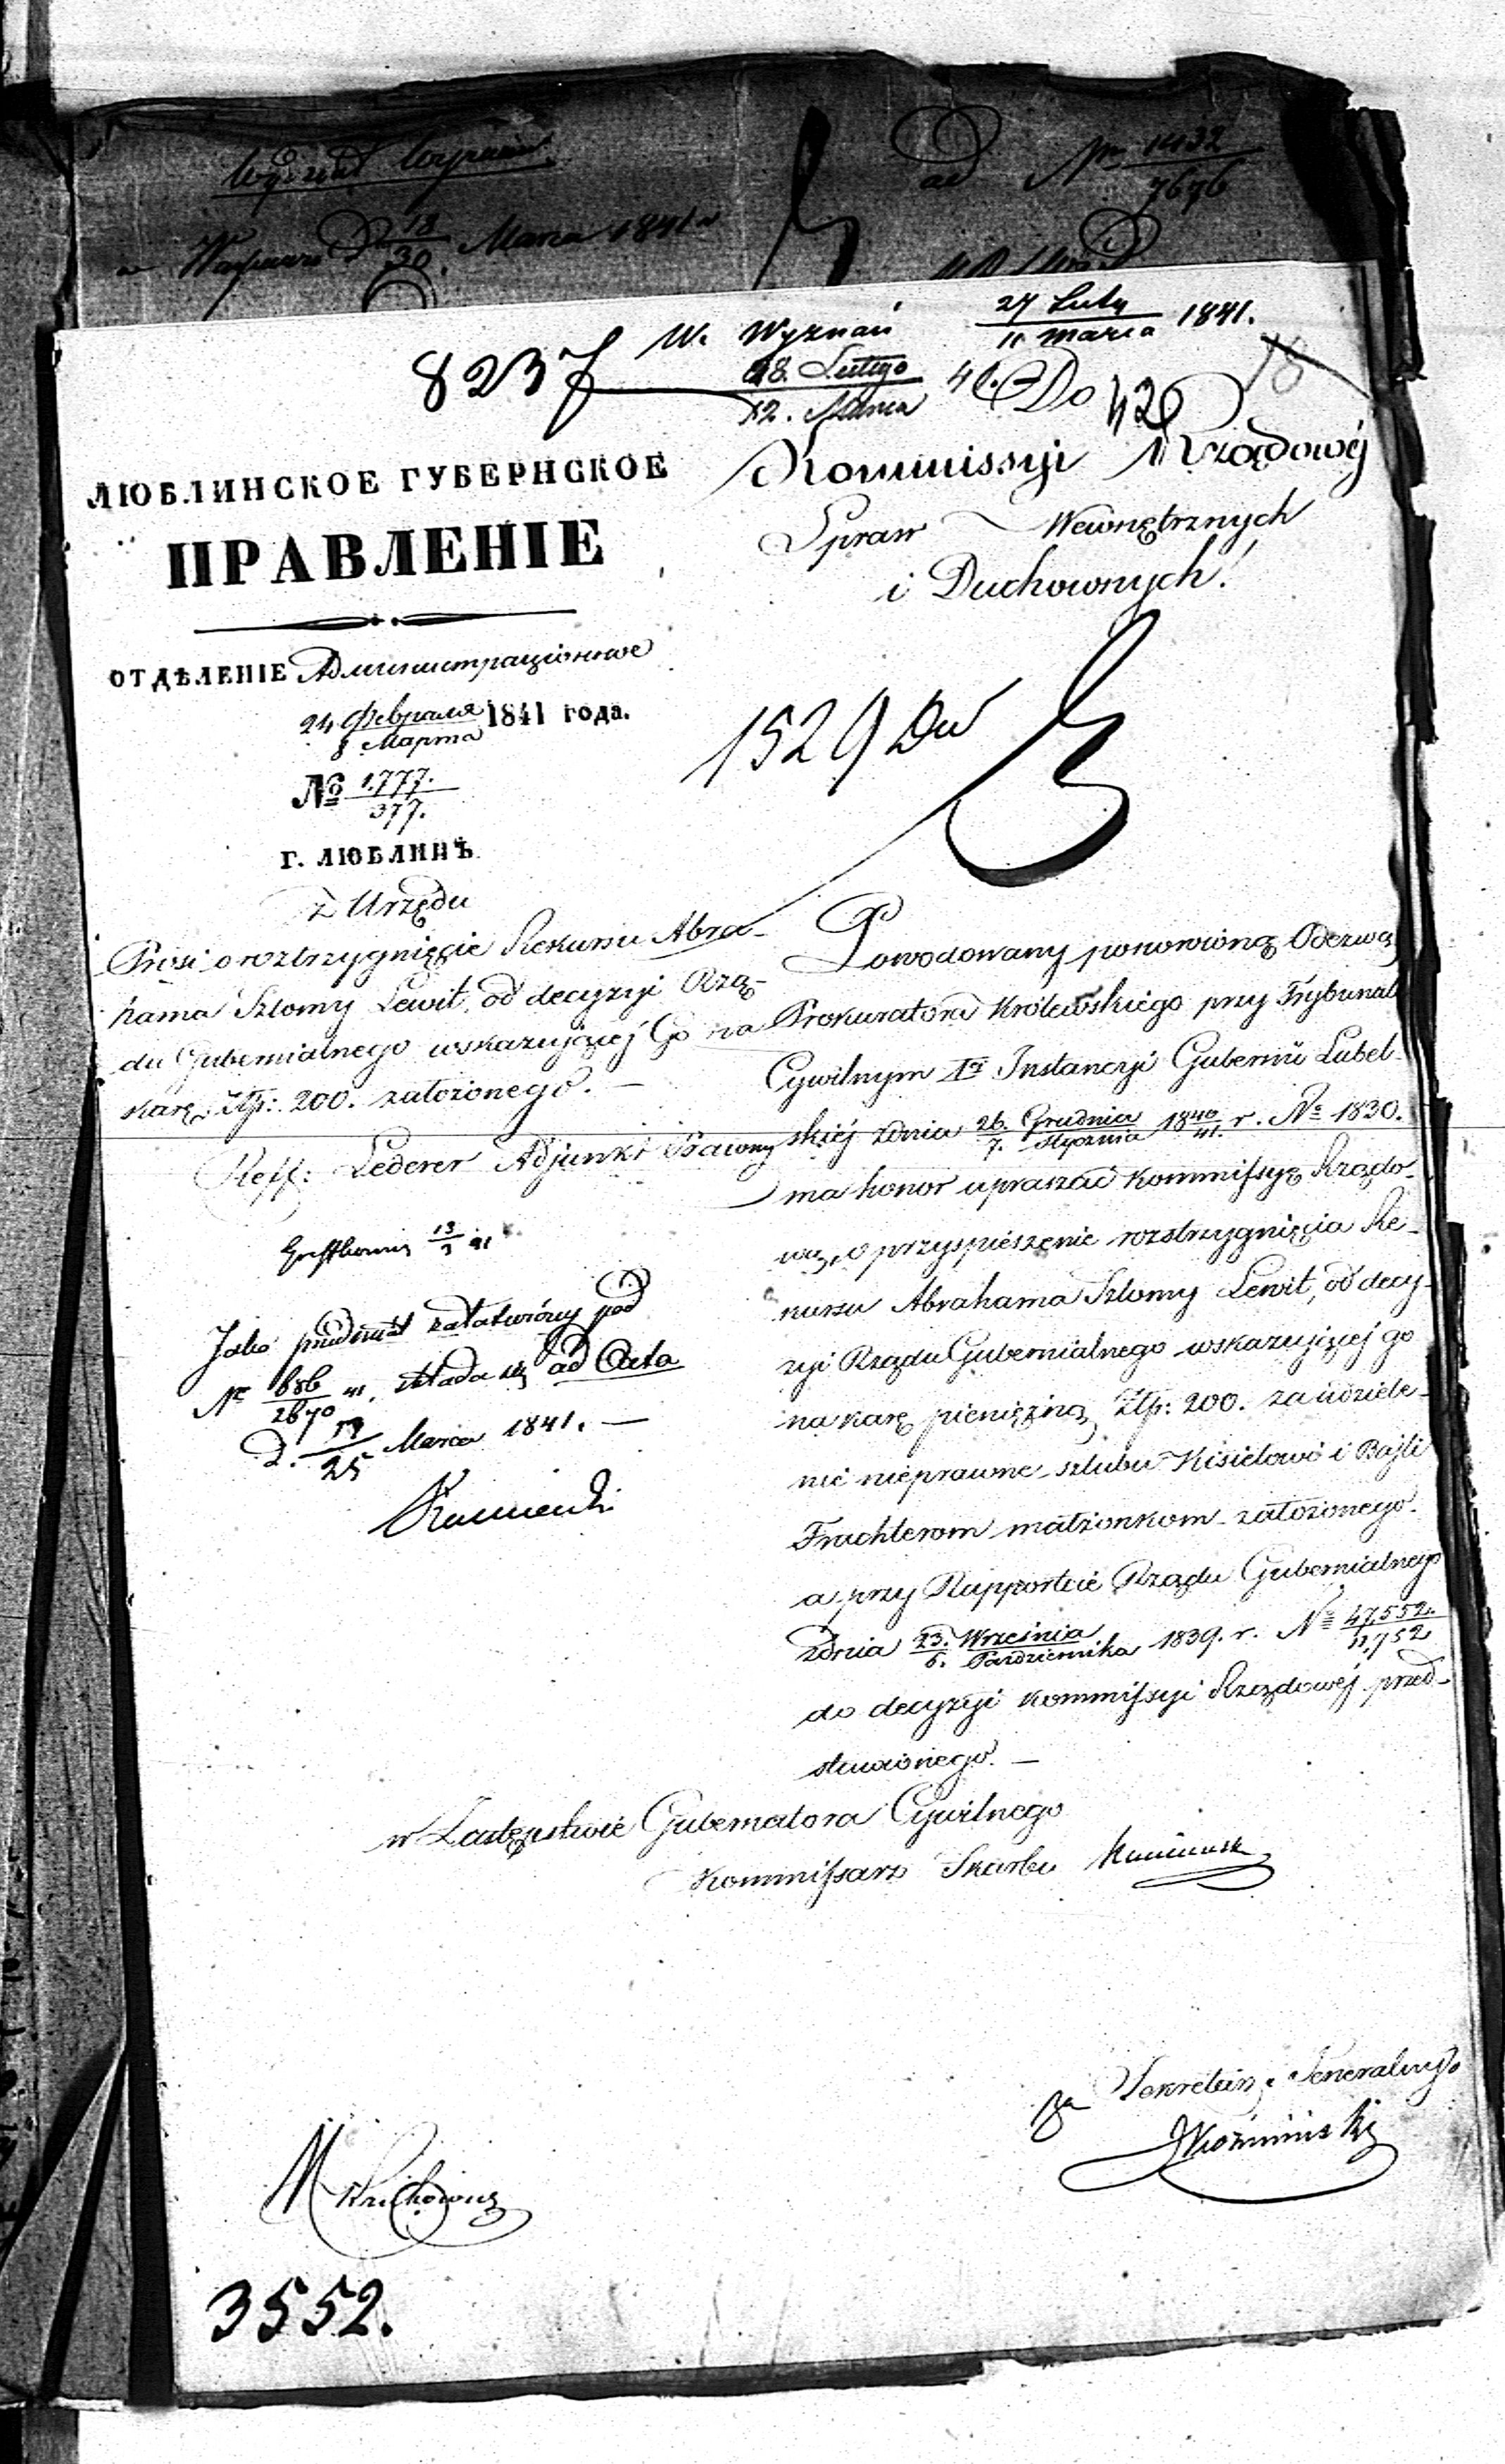 Wydział Wyznań
w Warszawie d 18/30. Marca 1841 r
ad Nro 1432/7676
W. Wyznań 27 Luty/11 Marca 1841.
8237 28. Lutego/12. Marca 41.
Do
Kommissyi Rządowéj
Spraw Wewnętrznych
i Duchownych!
ЛЮБЛИНСКОЕ ГУБЕРНСКОЕ
ПРАВЛЕНІЕ
ОТДѢЛЕНІЕ Администраціонное
24 Февраля/8 Марта 1841 года.
№ 1,777./377.
Г. ЛЮБЛИНЪ
1529
z Urzędu
Prosi o roztrzygnięcie Rekursu Abra-
hama Szlomy Lewit, od decyzyi Rzą-
du Gubernialnego wskazującéj Go na
karę Złp: 200. założonego. —
Reff: Lederer Adjunkt Prawny
13/3 41
Jako przedmiot załatwióny pod
Nr 686/2670 41. składa się ad Acta
d. 13/25 Marca 1841. —
Powodowany ponowioną Odezwą
Prokuratora Królewskiego przy Trybunale
Cywilnym Iéj Instancyi Gubernii Lubel-
skiéj zdnia 26. Grudnia/7. Stycznia 1840/41. r. No 1830.
ma honor upraszać Kommissyę Rządo-
wą, o przyspieszenie rozstrzygnięcia Re-
kursu Abrahama Szlomy Lewit, od decy-
zyi Rządu Gubernialnego wskazującéj go
na karę pieniężną Złp: 200. za udziele-
nie nieprawne szlubu Kisielowi i Bajli
Fruchterom małżonkom założonego.
a przy Rapporcie Rządu Gubernialnego
zdnia 23. Września/5. Października 1839. r. No 47,552./11,752
do decyzyi Kommissyi Rządowéj przed-
stawionego. —
w Zastępstwie Gubernatora Cywilnego
Kommissarz Skarbu
za Sekretarza Generalnego
3552.